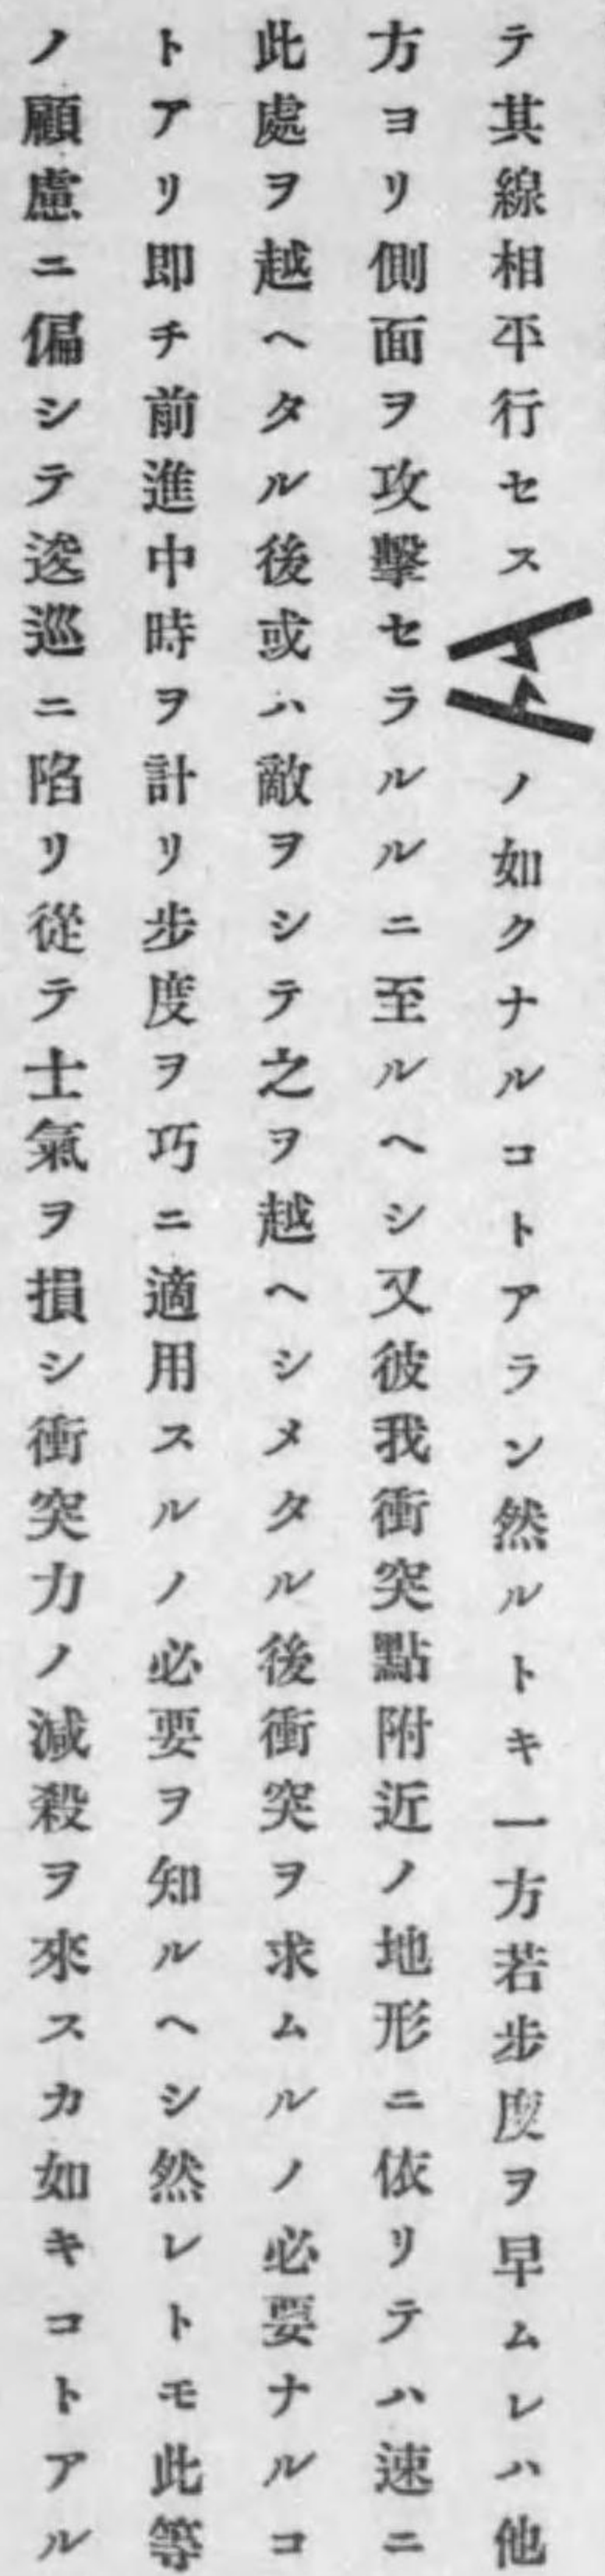 テ其線相平行セスノ如クナルコトアラン然ルトキ一方若步度ヲ早ムレハ他
方ヨリ側面ヲ攻擊セラルルニ至ルヘシ又彼我衝突點附近ノ地形ニ依リテハ速ニ
此處ヲ越ヘタル後或ハ敵ヲシテ之ヲ越ヘシメタル後衝突ヲ求ムルノ必要ナルコ
トアリ卽チ前進中時ヲ計リ步度ヲ巧ニ適用スルノ必要ヲ知ルヘシ然レトモ此等
ノ顧慮ニ偏シテ逡巡ニ陷リ從テ士氣ヲ損シ衝突力ノ減殺ヲ來スカ如キコトアル